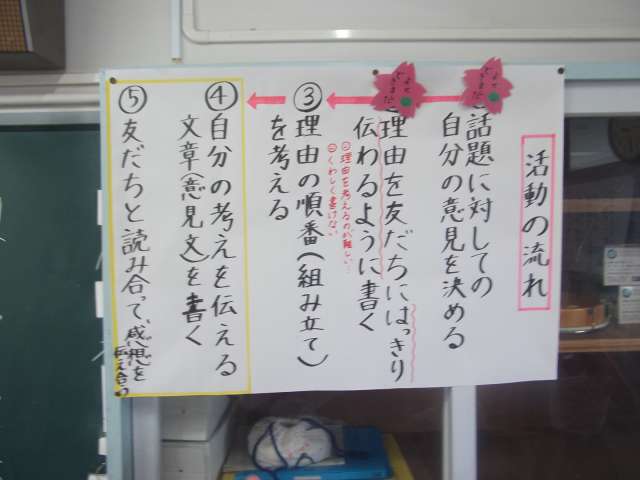 活動の流れ
話題に対しての
自分の意見を決める
理由を友だちにはっきり
伝わるように書く
㋁理由を考えるのが難しい…
㋁くわしく書けない
③理由の順番(組み立て)
を考える
④自分の考えを伝える
文章(意見文)を書く
⑤友だちと読み合って、感想を
伝え合う
よく
できました
よく
できました